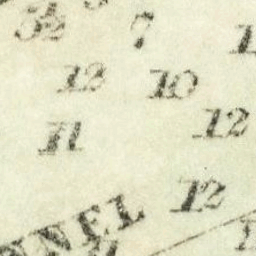 5½ 7
12 10
11 12
12
NNEL